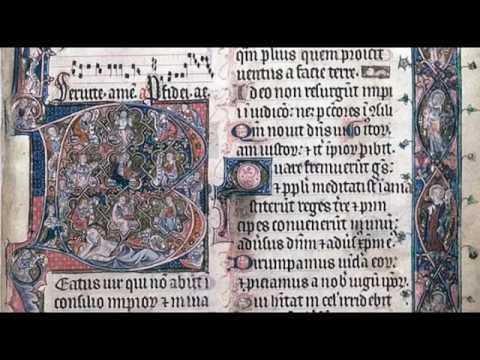 Seruite. amē. a P fidei. ac
Beatus uir qui nō abiit i
consilio impioꝝ & in uia
qm̄ pluis quem proicit
uentus a facie terre.
Ideo non resurgūt impi
i iudicio: neꝫ pctores ī ꝯsilio
Qm̄ nouit dn̄s uiā
iustoꝝ: & iter ipioꝝ pibit
Quare fremuerūt gn̄s:
& ppli meditati st̄ inania
Astiterūt reges tre & prin
cipes conuenerūt in unū:
aduersus dn̄m & aduersus xp̄m ei
Dirumpamus uicla eoꝝ:
& piciamus a nob iugū ipoꝝ
Qui hītat in cel' irridebit